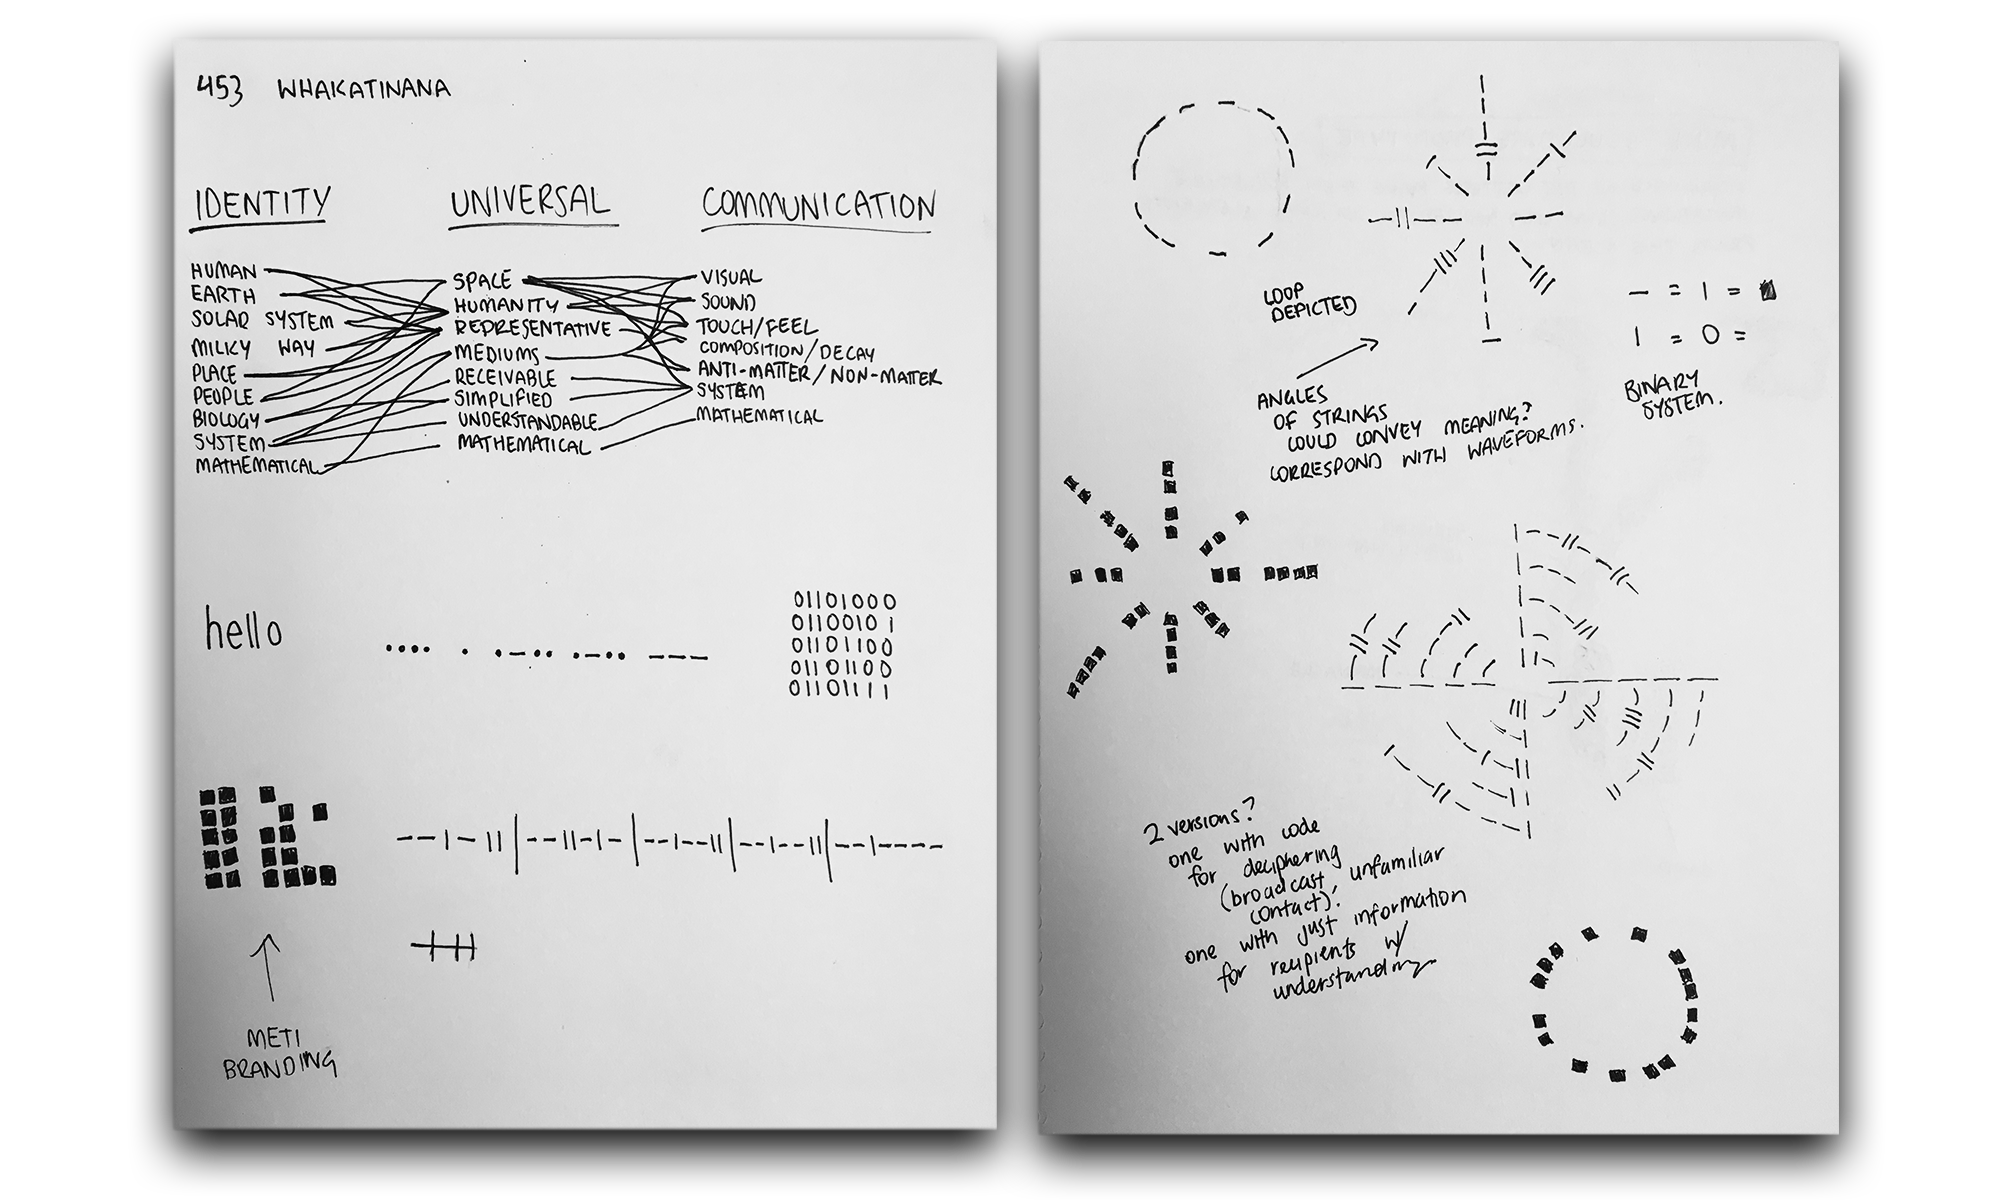 453 WHAKATINANA
IDENTITY
HUMAN
EARTH
SOLAR SYSTEM
MILKY WAY
PLACE
PEOPLE
BIOLOGY
SYSTEM
MATHEMATICAL
UNIVERSAL
SPACE
HUMANITY
REPRESENTATIVE
MEDIUMS
RECEIVABLE
SIMPLIFIED
UNDERSTANDABLE
MATHEMATICAL
COMMUNICATION
VISUAL
SOUND
TOUCH/FEEL
COMPOSITION/DECAY
ANTI-MATTER/NON-MATTER
SYSTEM
MATHEMATICAL
hello
•••• • •—•• •—•• ———
01101000
01100101
01101100
01101100
01101111
METI
BRANDING
LOOP
DEPICTED
ANGLES
OF STRINGS
COULD CONVEY MEANING?
CORRESPOND WITH WAVEFORMS.
— = 1 = ■
| = 0 =
BINARY
SYSTEM.
2 versions?
one with code
for deciphering
(broadcast, unfamiliar
contact).
one with just information
for recipients w/
understanding